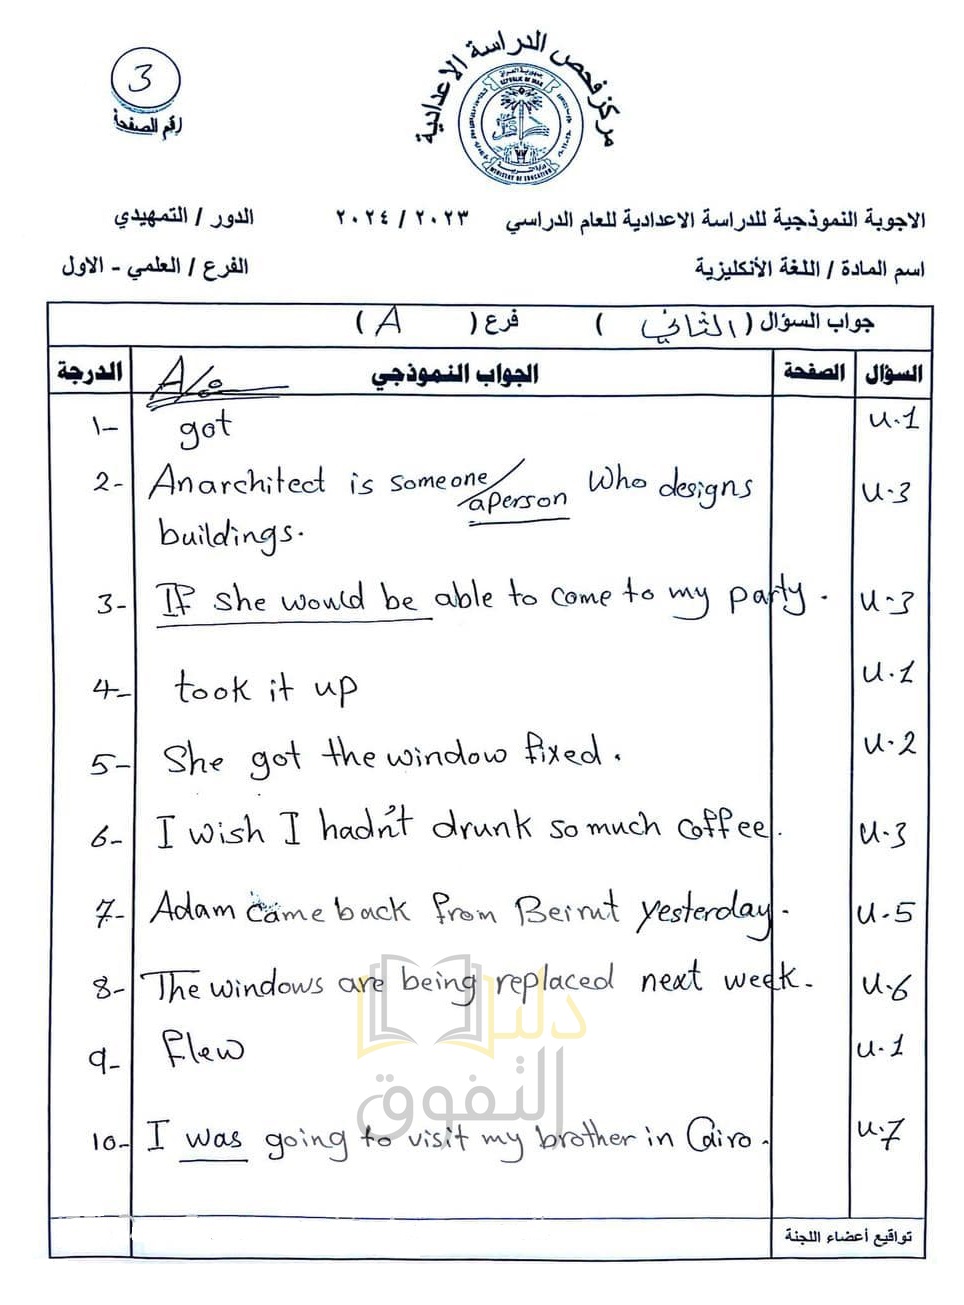 مركز فحص الدراسة الاعدادية
3
رقم الصفحة
REPUBLIC OF IRAQ
MINISTRY OF EDUCATION
الاجوبة النموذجية للدراسة الاعدادية للعام الدراسي ٢٠٢٣ / ٢٠٢٤ الدور / التمهيدي
اسم المادة / اللغة الأنكليزية الفرع / العلمي - الاول
جواب السؤال ( الثاني ) فرع ( A )
السؤال الصفحة الجواب النموذجي الدرجة
A/
1- got U.1
2- An architect is someone/a person who designs U.3
buildings.
3- If she would be able to come to my party. U.3
4- took it up U.1
5- She got the window fixed. U.2
6- I wish I hadn't drunk so much coffee. U.3
7- Adam came back from Beirut yesterday. U.5
8- The windows are being replaced next week. U.6
9- flew U.1
10- I was going to visit my brother in Cairo. U.7
دليل
التفوق
تواقيع أعضاء اللجنة